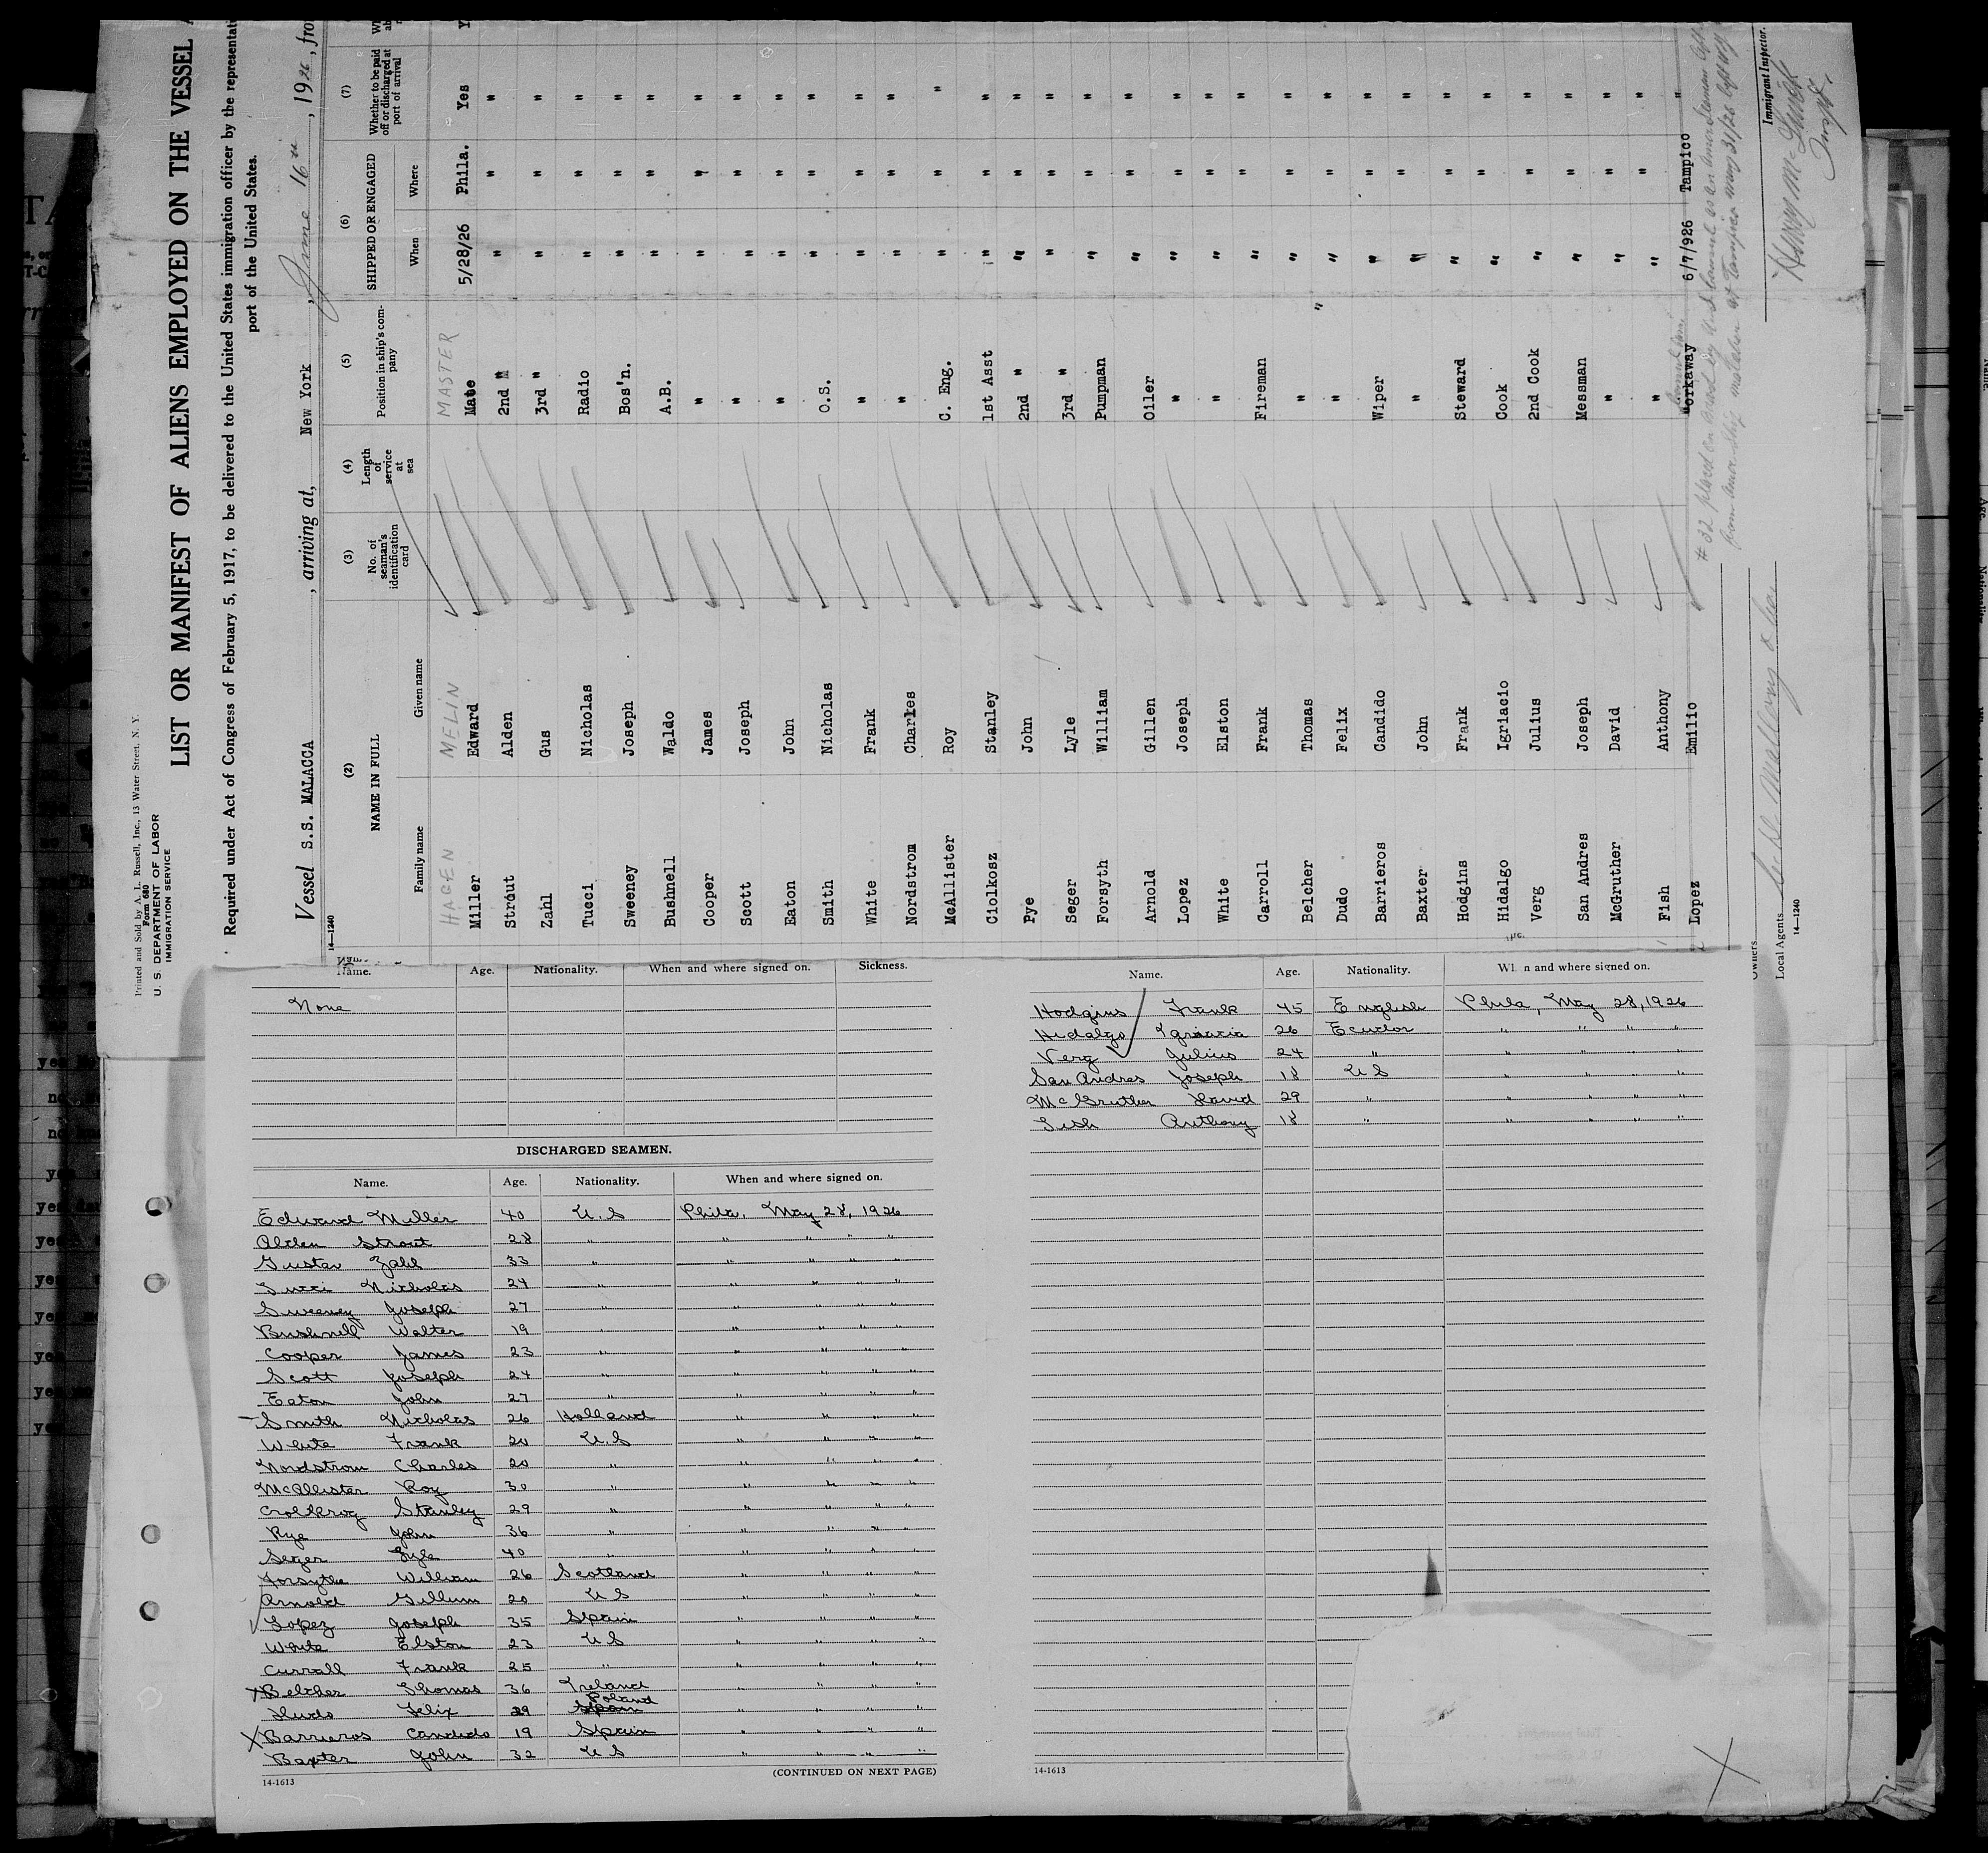 Printed and Sold by A. L. Russell, Inc., 13 Water Street, N. Y.
Form 680
U. S. DEPARTMENT OF LABOR
IMMIGRATION SERVICE
LIST OR MANIFEST OF ALIENS EMPLOYED ON THE VESSEL
Required under Act of Congress of February 5, 1917, to be delivered to the United States immigration officer by the representati
port of the United States.
Vessel S.S. MALACCA, arriving at, New York, June 16th, 1926, fro
14—1240
(2) (3) (4) (5) (6) (7)
NAME IN FULL No. of seaman's identification card Length of service at sea Position in ship's company SHIPPED OR ENGAGED Whether to be paid off or discharged at port of arrival
Family name Given name When Where
HAGEN MELIN MASTER
Miller Edward Mate 5/28/26 Phila. Yes Y
Strout Alden 2nd " " " "
Zahl Gus 3rd " " " "
Tucci Nicholas Radio " " "
Sweeney Joseph Bos'n. " " "
Bushnell Waldo A.B. " " "
Cooper James " " " "
Scott Joseph " " " "
Eaton John " " " "
Smith Nicholas O.S. " " "
White Frank " " " "
Nordstrom Charles " " " "
McAllister Roy C. Eng. " " "
Ciolkosz Stanley 1st Asst " " "
Pye John 2nd " " " "
Seger Lyle 3rd " " " "
Forsyth William Pumpman " " "
Arnold Gillen Oiler " " "
Lopez Joseph " " " "
White Elston " " " "
Carroll Frank Fireman " " "
Belcher Thomas " " " "
Dudo Felix " " " "
Barrieros Candido Wiper " " "
Baxter John " " " "
Hodgins Frank Steward " " "
Hidalgo Igriacio Cook " " "
Verg Julius 2nd Cook " " "
San Andres Joseph Messman " " "
McGruther David " " " "
Fish Anthony " " " "
Lopez Emilio Workaway 6/7/926 Tampico "
# 32 placed on board by U.S. Consul as an Amer Seaman left
from Amer. Ship at Tampico May 31/26
Owners
Local Agents
14—1240
Harry M. Smith
Immigrant Inspector.
Name. Age. Nationality. When and where signed on. Sickness.
None
DISCHARGED SEAMEN.
Name. Age. Nationality. When and where signed on.
Edward Miller 40 U.S Phila, May 28, 1926
Alden Strout 28 " " " " "
Gustav Zahl 33 " " " " "
Tucci Nicholas 24 " " " " "
Sweeney Joseph 27 " " " " "
Bushnell Walter 19 " " " " "
Cooper James 23 " " " " "
Scott Joseph 24 " " " " "
Eaton John 27 " " " " "
Smith Nicholas 26 Holland " " " "
White Frank 20 U.S " " " "
Nordstrom Charles 20 " " " " "
McAllister Roy 30 " " " " "
Stanley 29 " " " " "
Pye John 36 " " " " "
Seger Lyle 40 " " " " "
Forsythe William 26 Scotland " " " "
Arnold Gillum 20 U S " " " "
Lopez Joseph 35 Spain " " " "
White Elston 23 U S " " " "
Currall Frank 25 " " " " "
X Belcher Thomas 36 Ireland " " " "
Dudo Felix 29 Spain Poland " " " "
X Barrieros Candido 19 Spain " " " "
Baxter John 32 U S " " " "
14-1613
(CONTINUED ON NEXT PAGE)
Name. Age. Nationality. When and where signed on.
Hodgins Frank 45 English Phila, May 28, 1926
Hidalgo Ignacia 26 Ecudor " " " "
Verg Julius 24 " " " " "
San Andres Joseph 18 U S " " " "
McGruther David 29 " " " " "
Fish Anthony 18 " " " " "
14-1613